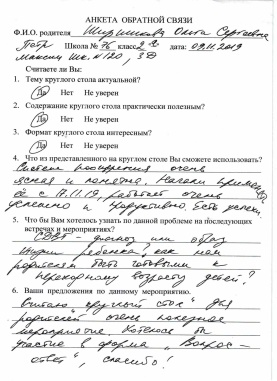 АНКЕТА ОБРАТНОЙ СВЯЗИ
Ф.И.О. родителя Ширшикова Ольга Сергеевна
Петр Школа № 76 класс 2 дата: 09.11.2019
Максим шк. №120, 3Д
Считаете ли Вы:
1. Тему круглого стола актуальной?
Да Нет Не уверен
2. Содержание круглого стола практически полезным?
Да Нет Не уверен
3. Формат круглого стола интересным?
Да Нет Не уверен
4. Что из представленного на круглом столе Вы сможете использовать?
Система поощрения очень
ясная и понятна. Начали применять
её с 11.11.19, работает очень
успешно и эффективно. Есть успехи.
5. Что бы Вам хотелось узнать по данной проблеме на последующих
встречах и мероприятиях?
СДВГ - диагноз или образ
жизни ребенка? как нам
родителям быть готовыми к
переходному возрасту детей?
6. Ваши предложения по данному мероприятию.
Считаю "круглый стол" для
родителей очень полезное
мероприятие. Хотелось бы
участие в форма "Вопрос-
ответ", спасибо!